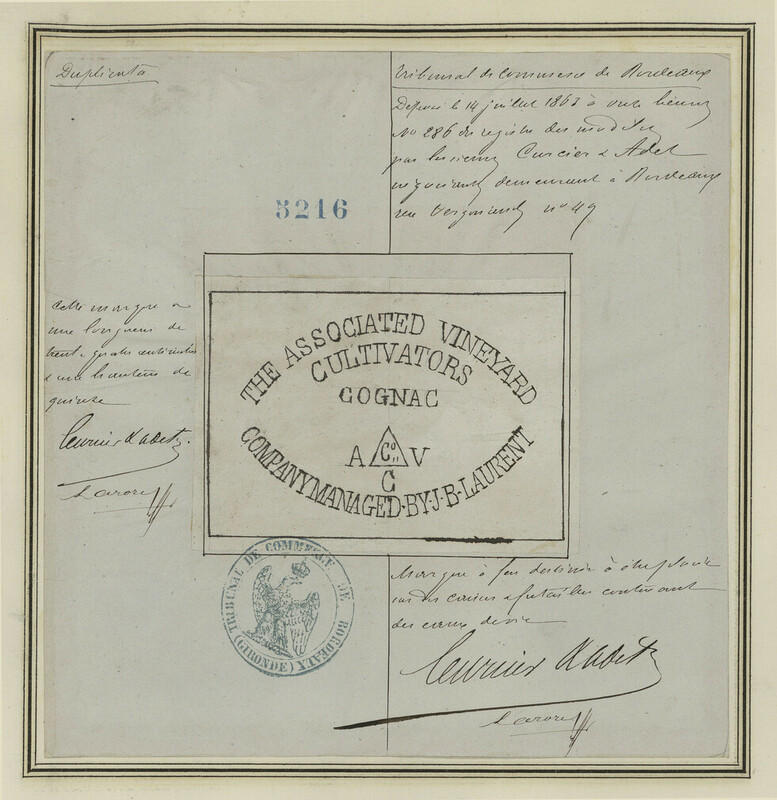 Duplicata
Tribunal de Commerce de Bordeaux
Déposé le 14 juillet 1863 à onze heures
No 286 du registre des modèles
par les sieurs Curcier & Adet
négociants demeurant à Bordeaux
rue no 49
5216
Cette marque a
une longueur de
trente quatre centimètres
& une hauteur de
quinze
THE ASSOCIATED VINEYARD
CULTIVATORS
COGNAC
A Co V
C
COMPANY MANAGED·BY·J·B·LAURENT
TRIBUNAL DE COMMERCE DE BORDEAUX
(GIRONDE)
Marque à feu destinée à être apposée
sur des caisses & futailles contenant
des eaux de vie
Curcier & Adet